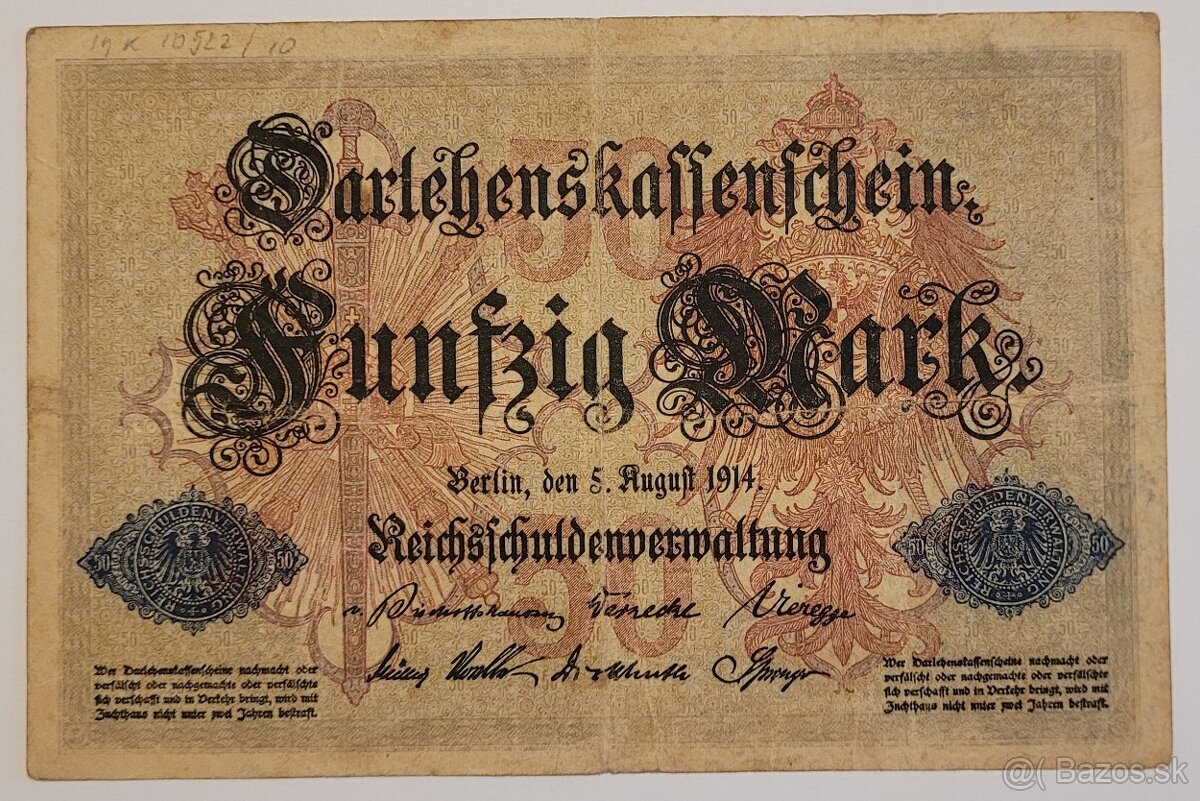 10522/10
Darlehenskassenschein.
50
Fünfzig Mark.
Berlin, den 5. August 1914.
Reichsschuldenverwaltung
50
50 REICHSSCHULDENVERWALTUNG 50
50 REICHSSCHULDENVERWALTUNG 50
v. Bischoffshausen Warnecke Vieregge
Müller Dickhuth Springer
Wer Darlehenskassenscheine nachmacht oder
verfälscht oder nachgemachte oder verfälschte
sich verschafft und in Verkehr bringt, wird mit
Zuchthaus nicht unter zwei Jahren bestraft.
Wer Darlehenskassenscheine nachmacht oder
verfälscht oder nachgemachte oder verfälschte
sich verschafft und in Verkehr bringt, wird mit
Zuchthaus nicht unter zwei Jahren bestraft.
@( Bazos.sk